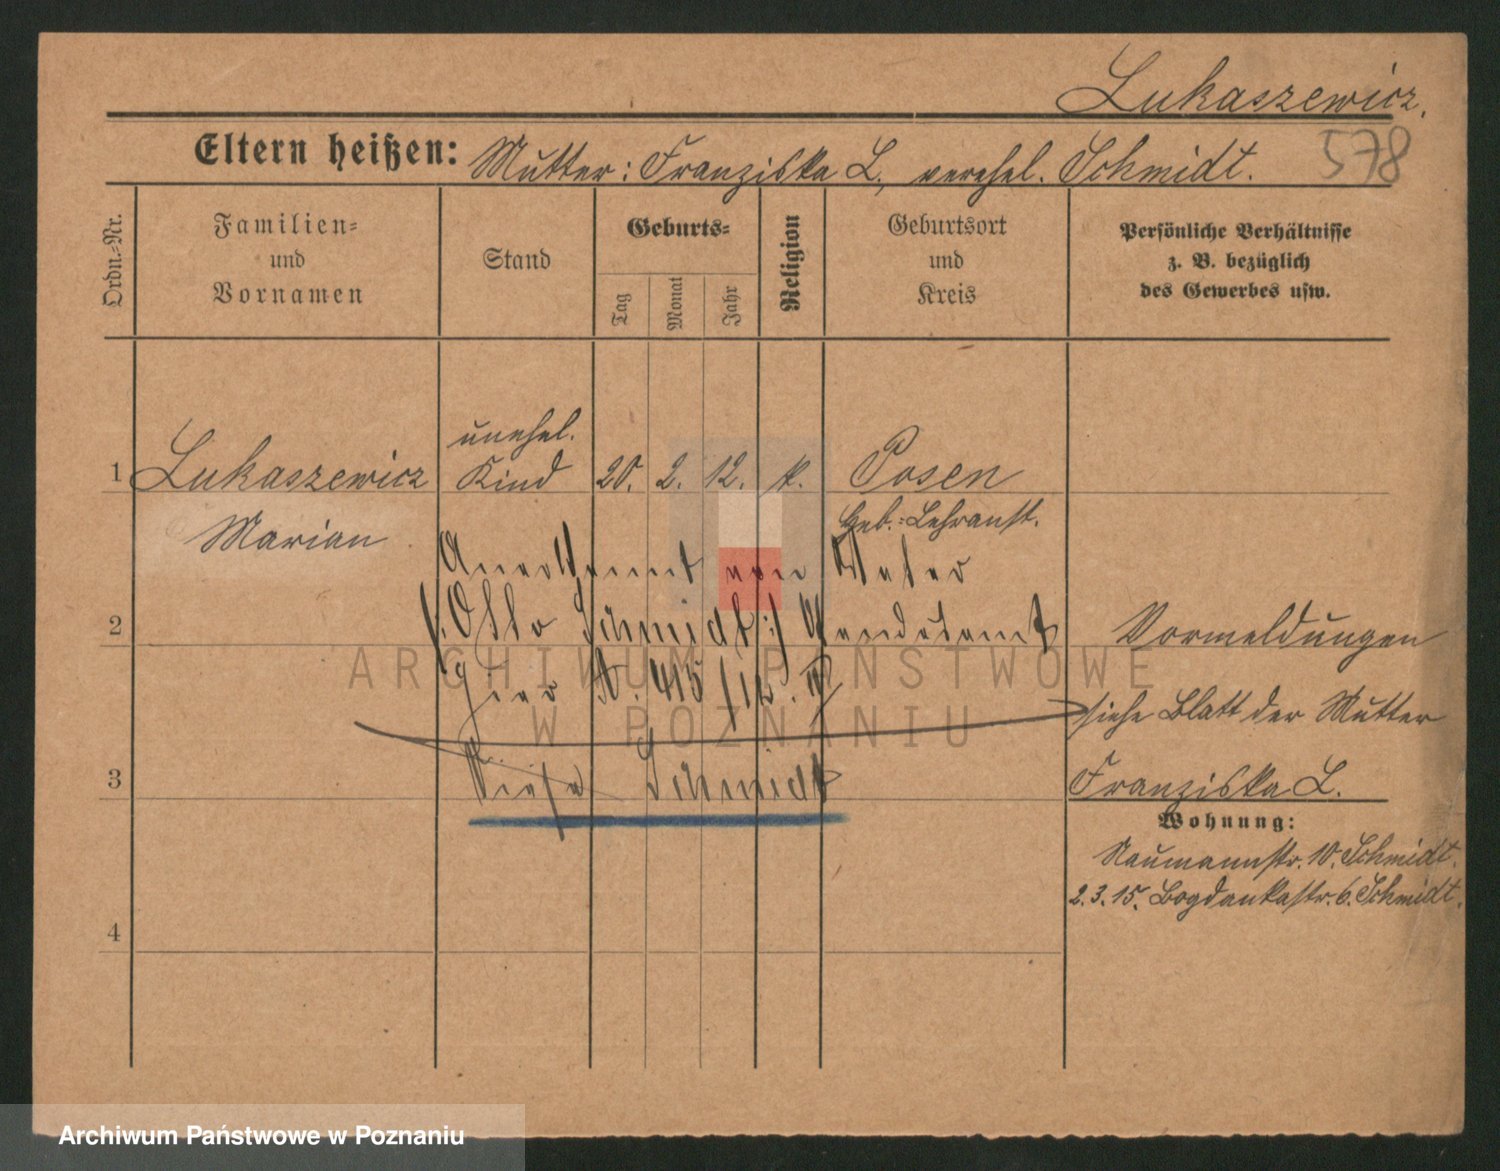 Lukaszewicz.
578
Eltern heißen: Mutter: Franziska L., verehel. Schmidt.
Ordn.-Nr.
Familien-
und
Vornamen
Stand
Geburts-
Tag
Monat
Jahr
Religion
Geburtsort
und
Kreis
Persönliche Verhältnisse
z. B. bezüglich
des Gewerbes usw.
unehel.
1 Lukaszewicz Kind 20. 2. 12. k. Posen
Marian Heb.-Lehranst.
Anerkannt von Vater
2 /: Otto Schmidt :/ Standesamt
hier N. 415/12. IV
Vormeldungen
siehe Blatt der Mutter
3 Siehe Schmidt
Franziska L.
Wohnung:
Naumannstr. 10. Schmidt.
2.3.15. Bogdankastr. 6. Schmidt.
4
ARCHIWUM PAŃSTWOWE
W POZNANIU
Archiwum Państwowe w Poznaniu